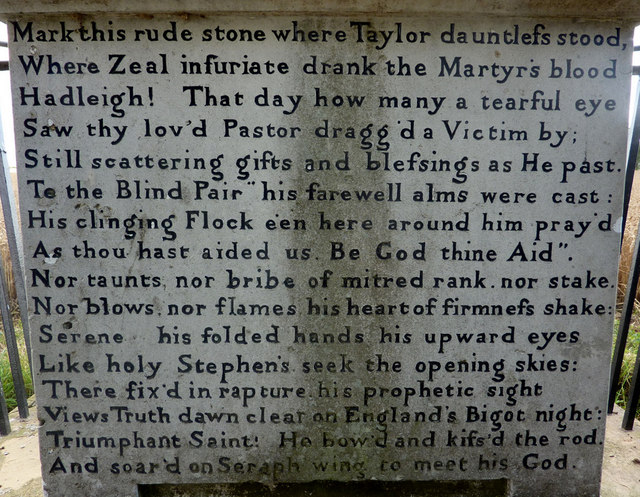 Mark this rude stone where Taylor dauntlefs stood,
Where Zeal infuriate drank the Martyr's blood
Hadleigh! That day how many a tearful eye
Saw thy lov'd Pastor dragg'd a Victim by;
Still scattering gifts and blefsings as He past.
"To the Blind Pair" his farewell alms were cast:
His clinging Flock e'en here around him pray'd
"As thou hast aided us, Be God thine Aid".
Nor taunts, nor bribe of mitred rank, nor stake,
Nor blows, nor flames, his heart of firmnefs shake:
Serene his folded hands his upward eyes
Like holy Stephen's, seek the opening skies:
There fix'd in rapture his prophetic sight
Views Truth dawn clear on England's Bigot night:
Triumphant Saint! He bow'd and kifs'd the rod,
And soar'd on Seraph wing to meet his God.